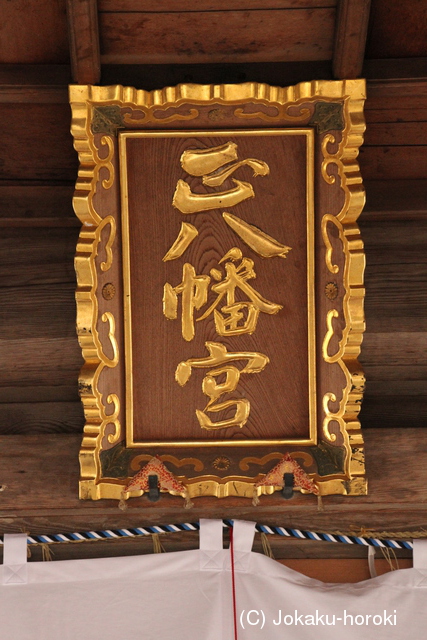 正八幡宮
(C) Jokaku-horoki